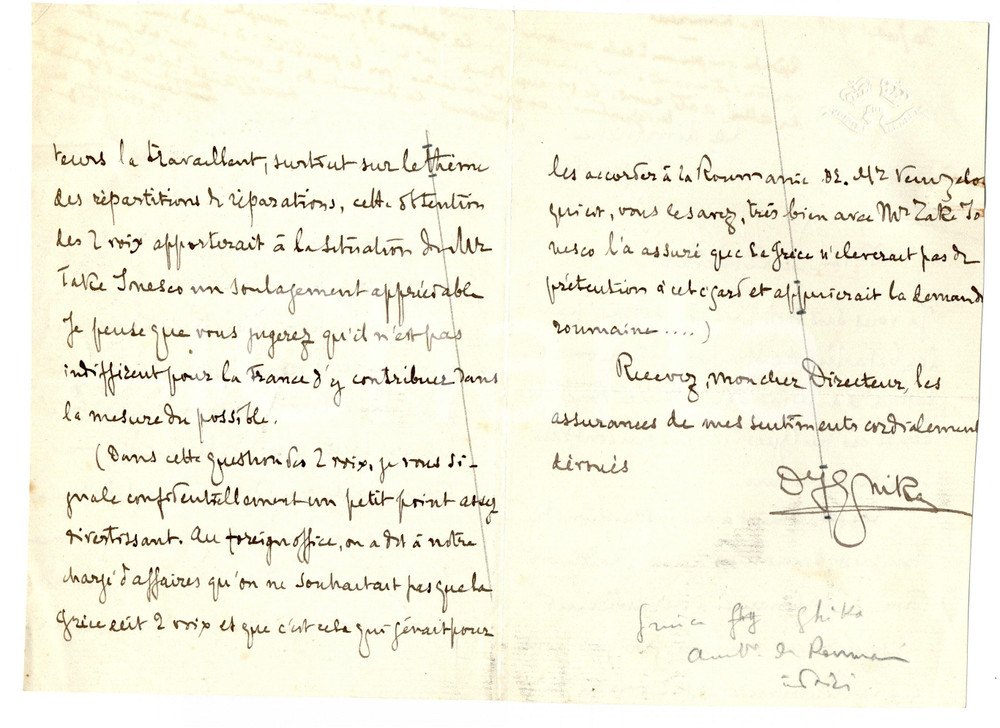 teurs la travaillent, surtout sur le thème
des répartitions de réparations, cette obtention
des 2 voix apporterait à la situation de Mr
Take Ionesco un soulagement appréciable
Je pense que vous jugerez qu'il n'est pas
indifférent pour la France d'y contribuer dans
la mesure du possible.
(Dans cette question des 2 voix, je vous si-
gnale confidentiellement un petit point assez
divertissant. Au foreign office, on a dit à notre
chargé d'affaires qu'on ne souhaitait pas que la
Grèce eût 2 voix et que c'est cela qui gênait pour
les accorder à la Roumanie. Mr Venizelos
qui est, vous le savez, très bien avec Mr Take Io
nesco l'a assuré que la Grèce n'élèverait pas de
prétention à cet égard et appuierait la demande
roumaine ....)
Recevez, mon cher Directeur, les
assurances de mes sentiments cordialement
dévoués
Ghika
Ghika
de Roumanie
à Paris